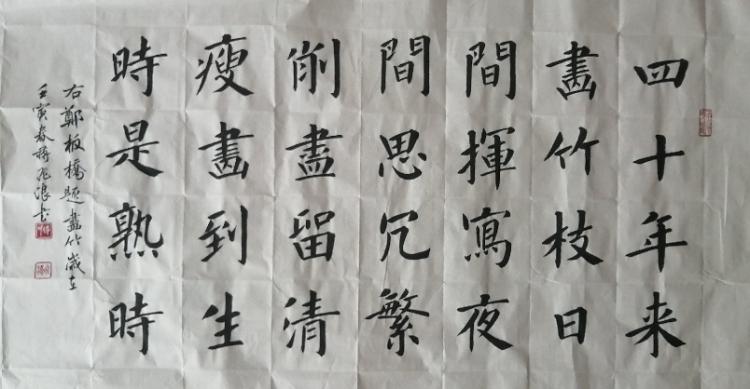 四十年来
畫竹枝日
間揮寫夜
間思冗繁
削盡留清
瘦畫到生
時是熟時
右鄭板橋題畫竹歲在
壬寅春蔣兆浪书